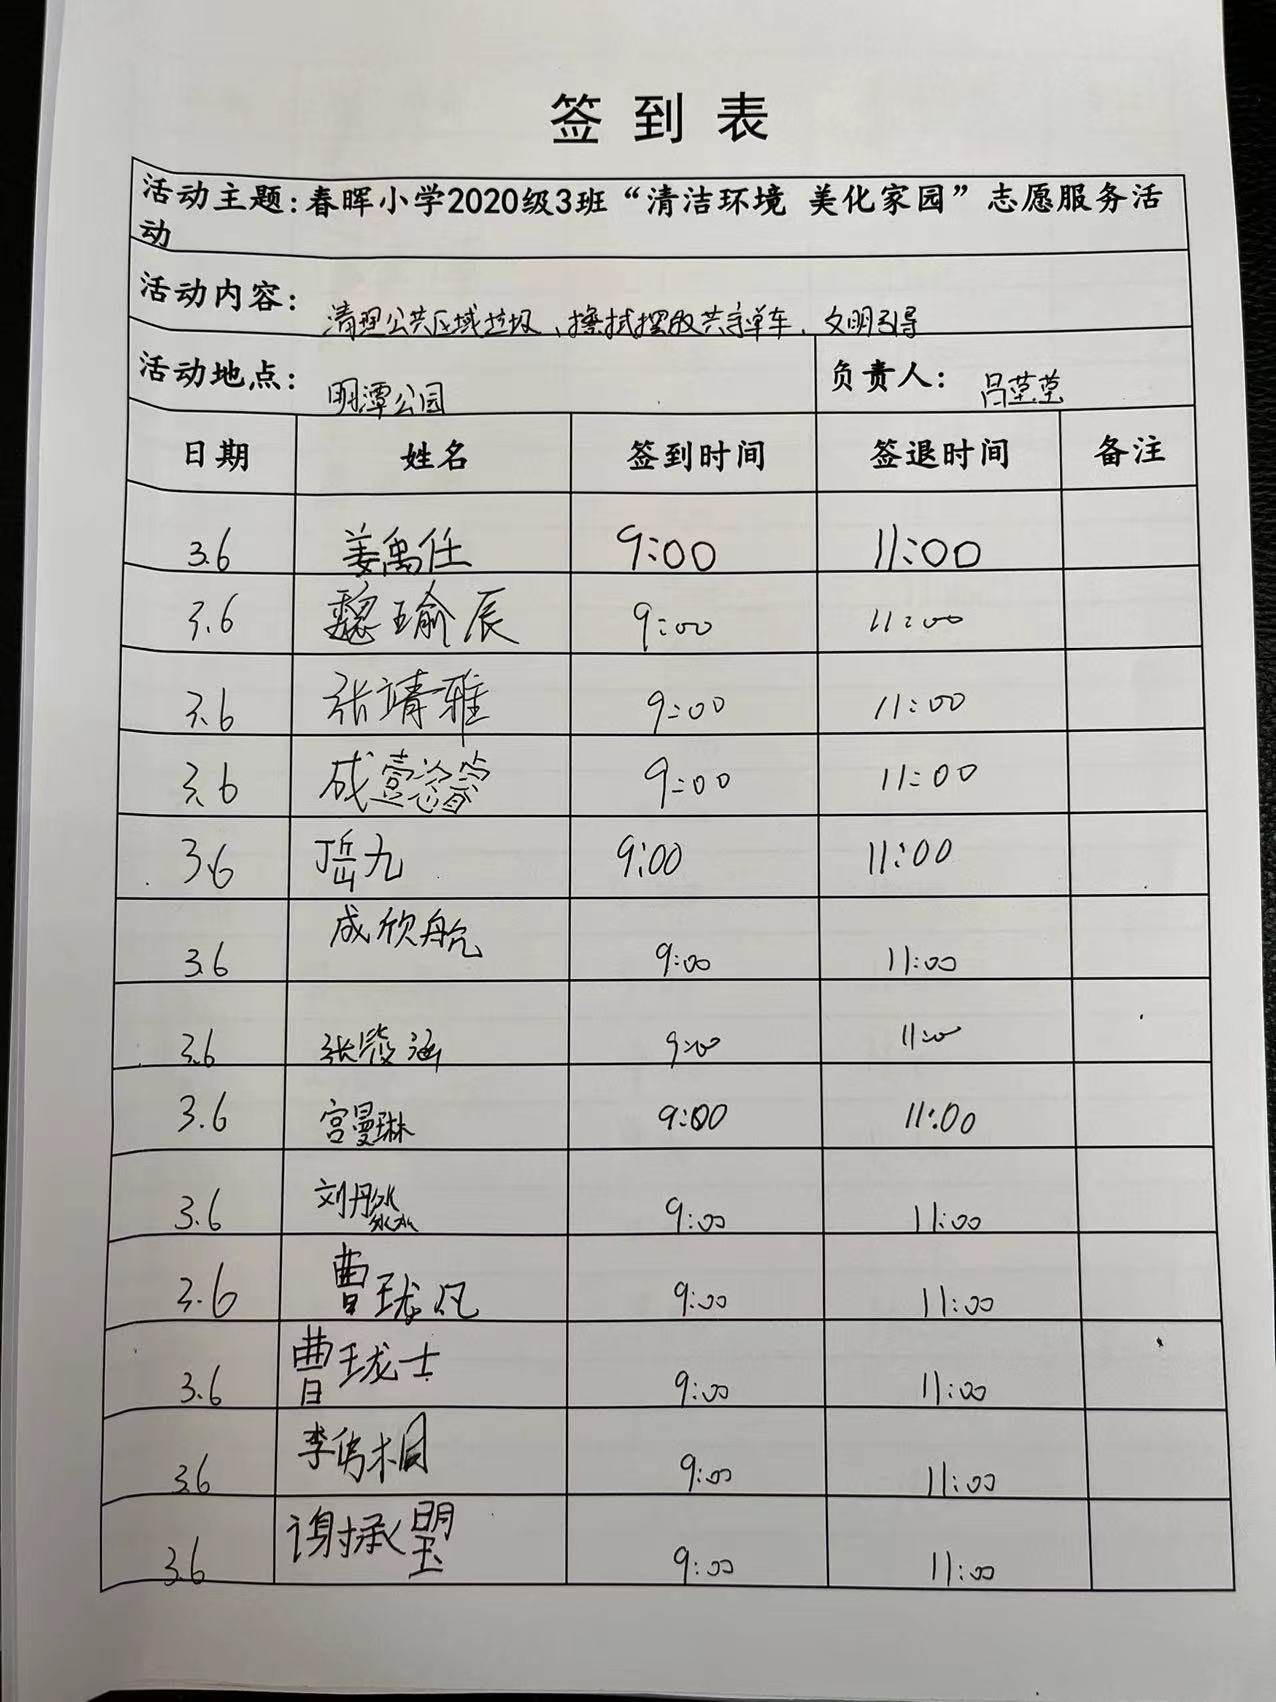 签到表
活动主题:春晖小学2020级3班“清洁环境 美化家园”志愿服务活
动
活动内容: 清理公共区域垃圾、擦拭摆放共享单车、文明引导
活动地点: 明潭公园 负责人: 吕莹莹
日期 姓名 签到时间 签退时间 备注
3.6 姜禹任 9:00 11:00
3.6 魏瑜辰 9:00 11:00
3.6 张靖雅 9:00 11:00
3.6 成壹 9:00 11:00
3.6 丁岳九 9:00 11:00
3.6 成欣航 9:00 11:00
3.6 张筱涵 9:00 11:00
3.6 宫曼琳 9:00 11:00
3.6 刘丹 9:00 11:00
3.6 曹珑凡 9:00 11:00
3.6 曹珑士 9:00 11:00
3.6 李隽桐 9:00 11:00
3.6 谢承曌 9:00 11:00